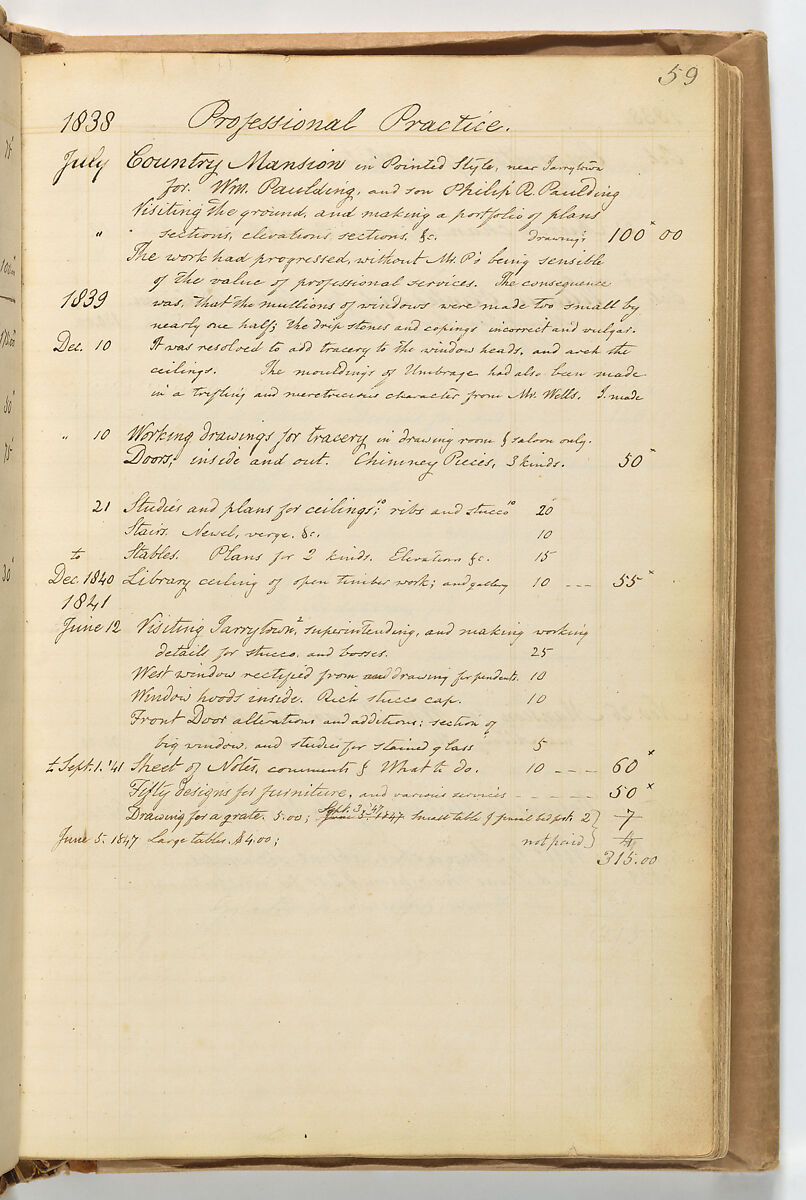 59
1838 Professional Practice.
July Country Mansion in Pointed Style, near Tarrytown
for Wm. Paulding, and son Philip R. Paulding
Visiting the ground, and making a portfolio of plans
" " sections, elevations, sections, &c. drawings 100 x 00
The work had progressed, without Mr. P's being sensible
of the value of professional services. The consequence
1839 was, that the mullions of windows were made too small by
nearly one half; the drip stones and copings incorrect and vulgar.
Dec. 10 It was resolved to add tracery to the window heads, and arch the
ceilings. The mouldings of Umbrage had also been made
in a trifling and meretricious character from Mr. Wells. I made
" 10 Working drawings for tracery in drawing room & saloon only.
Doors, inside and out. Chimney Pieces, 3 kinds. 50 x
21 Studies and plans for ceilings, 10 ribs and stucco 10 20
Stairs, Newel, verge, &c. 10
to Stables. Plans for 2 kinds. Elevations &c. 15
Dec. 1840 Library ceiling of open timber work; and gallery 10 --- 55 x
1841
June 12 Visiting Tarrytown 2, superintending, and making working
details for stucco, and bosses. 25
West window rectified from and drawing for pendents. 10
Window hoods inside. Rich stucco cap. 10
Front Door alterations and additions; section of
big window, and studies for stained glass 5
to Sept. 1. '41 Sheet of Notes, comments & What to do. 10 ---- 60 x
Fifty designs for furniture, and various services ----- 50 x
Sept. 3, '47
Drawing for a grate. 5.00; June 5. 1847 Small table & bed post 2 } 7
June 5. 1847 Large tables. $4.00; not paid } 4
315.00